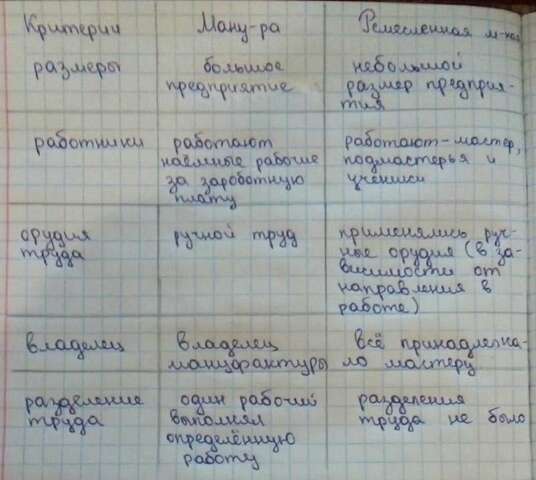 Критерии
Ману-ра
Ремесленная м-кая
размеры
большое
предприятие
небольшой
размер предприя-
тия
работники
работают
наёмные рабочие
за зароботную
плату
работают-мастер,
подмастерья и
ученики
орудия
труда
ручной труд
применялись руч-
ные орудия (в за-
висимости от
направления в
работе)
владелец
владелец
мануфактуры
всё принадлежа-
ло мастеру
разделение
труда
один рабочий
выполнял
определённую
работу
разделения
труда не было